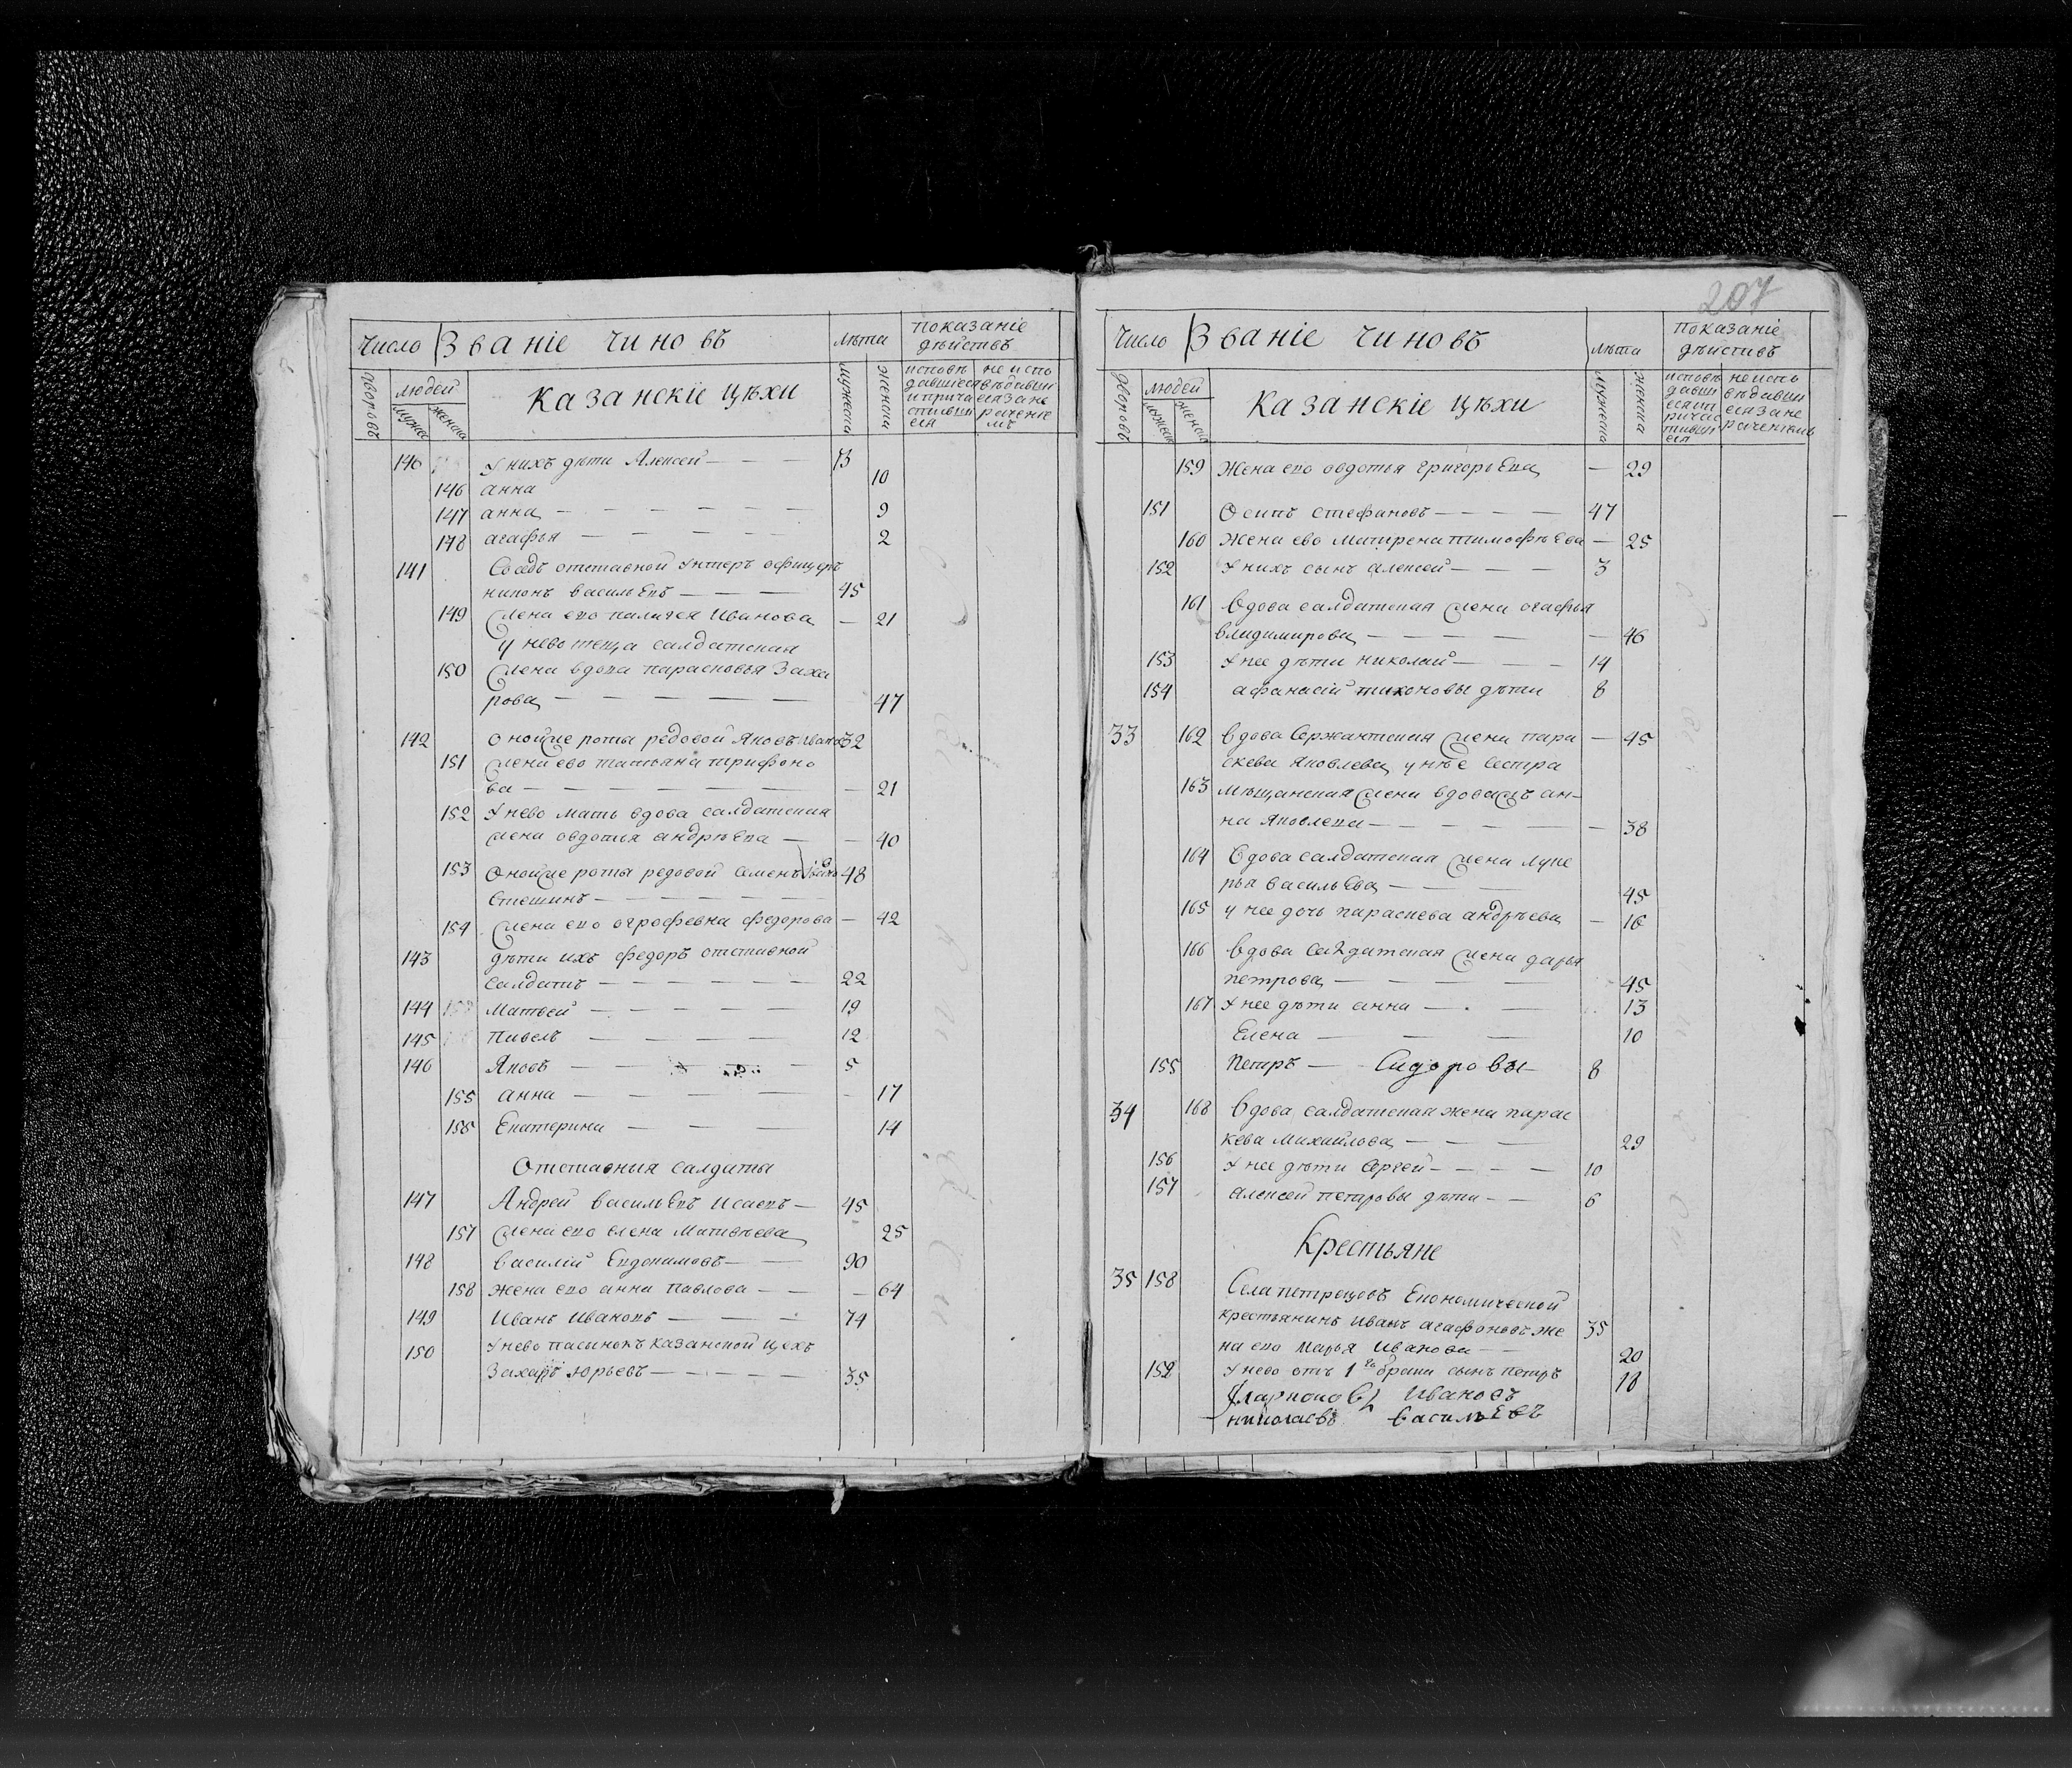 Число Званіе чиновъ лѣта показаніе дѣйствъ
дворовъ людей мужеска женска Казанскіе цѣхи мужеска женска исповѣдавшіеся и причастившіеся не исповѣдавшіеся за нераченіемъ
140 У нихъ дѣти Алексей — — — 13
146 анна 10
147 анна — — — — — — 9
148 агафья — — — — 2
141 Сосѣдъ отставной Унтеръ офицеръ
никонъ васильевъ — — — 45
149 Жена ево палагея Иванова — 21
у нево теща салдатская
150 Жена вдова парасковья Заха
рова — — — — — 47
142 Онойже роты редовой Яковъ Ивановъ 32
151 Жена ево татьяна трифоно
ва — — — — — — — 21
152 У нево мать вдова салдатская
жена овдотья андрѣева — — 40
153 Онойже роты редовой Семенъ 48
Стешинъ — — — — — —
154 Жена ево огрофевна федорова — 42
143 дѣти ихъ федоръ отставной
салдатъ — — — — — — 22
144 Матвей — — — — — 19
145 Павелъ — — — — — 12
146 Яковъ — — — — 5
155 анна — — — — — — 17
156 Екатерина — — — 14
Отставныя салдаты
147 Андрей васильевъ Исаевъ — 45
157 Жена ево елена Матвѣева 25
148 василій Евдокимовъ — — 90
158 жена ево анна павлова — — — 64
149 Иванъ Ивановъ — — — 74
150 У нево пасынокъ казанской цехъ
Захаръ Юрьевъ — — — — — 35
207
Число Званіе чиновъ лѣта показаніе дѣйствъ
дворовъ людей мужеска женска Казанскіе цѣхи мужеска женска исповѣдавшіеся и причастившіеся не исповѣдавшіеся за нераченіемъ
159 жена ево овдотья григорьева — 29
151 Осипъ стефановъ — — — — 47
160 жена ево матрена тимофѣева — 25
152 У нихъ сынъ алексей — — — 3
161 вдова салдатская жена агафья
владимирова — — — — — 46
153 У нее дѣти николай — — — 14
154 афанасій тихоновы дѣти 8
33 162 вдова Сержантская жена пара — 45
скева Яковлева у неѣ сестра
163 Мѣщанская жена вдоважъ ан-
на Яковлева — — — — — — 38
164 Вдова салдатская жена луке
рья васильева — — — 45
165 у нее дочь параскева андрѣева — 16
166 вдова салдатская жена дарья
петрова — — — — 45
167 У нее дѣти анна — — 13
Елена — — — 10
155 Петръ — Сидоровы — 8
34 168 вдова салдатская жена парас
кева Михайлова — — — 29
156 У нее дѣти Сергей — — — — 10
157 алексей петровы дѣти — — 6
Крестьяне
35 158 Села петрецовъ Економической
крестьянинъ иванъ агафоновъ же 35
на ево марья Иванова — — 20
159 У нево отъ 1го брака сынъ петръ 18
Иванов
николаевъ васильевъ